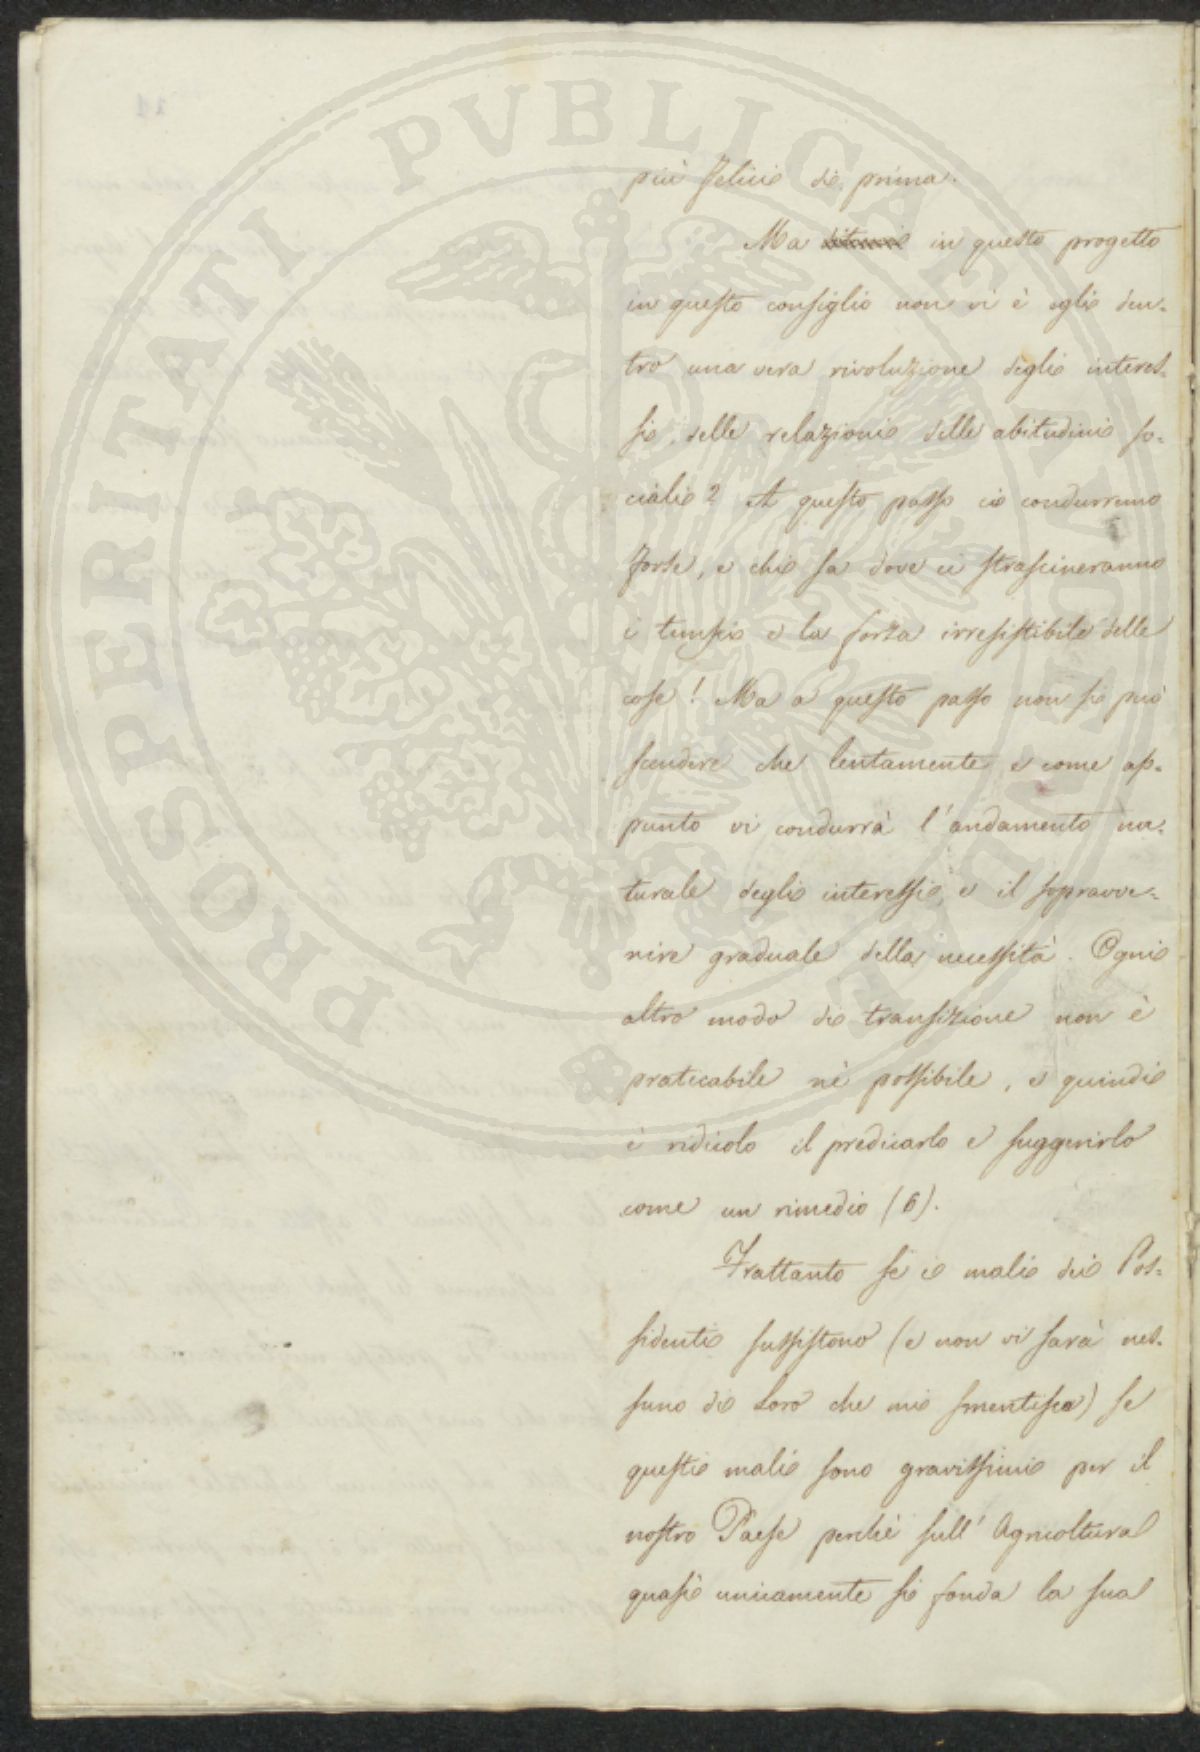 PROSPERITATI PVBLICAE AVGENDAE
più felici di prima.
Ma in questo progetto
in questo consiglio non vi è egli den-
tro una vera rivoluzione degli interes-
si, delle relazioni delle abitudini so-
ciali? A questo passo ci condurranno
forse, e chi sa dove ci strascineranno
i tempi e la forza irresistibile delle
cose! Ma a questo passo non si può
scendere che lentamente e come ap-
punto vi condurrà l'andamento na-
turale degli interessi, e il sopravve-
nire graduale della necessità. Ogni
altro modo di transizione non è
praticabile nè possibile, e quindi
è ridicolo il predicarlo e suggerirlo
come un rimedio (6).
Frattanto se i mali dei Pos-
sidenti sussistono (e non vi sarà nes-
suno di Loro che mi smentisca) se
questi mali sono gravissimi per il
nostro Paese perchè sull'Agricoltura
quasi unicamente si fonda la sua